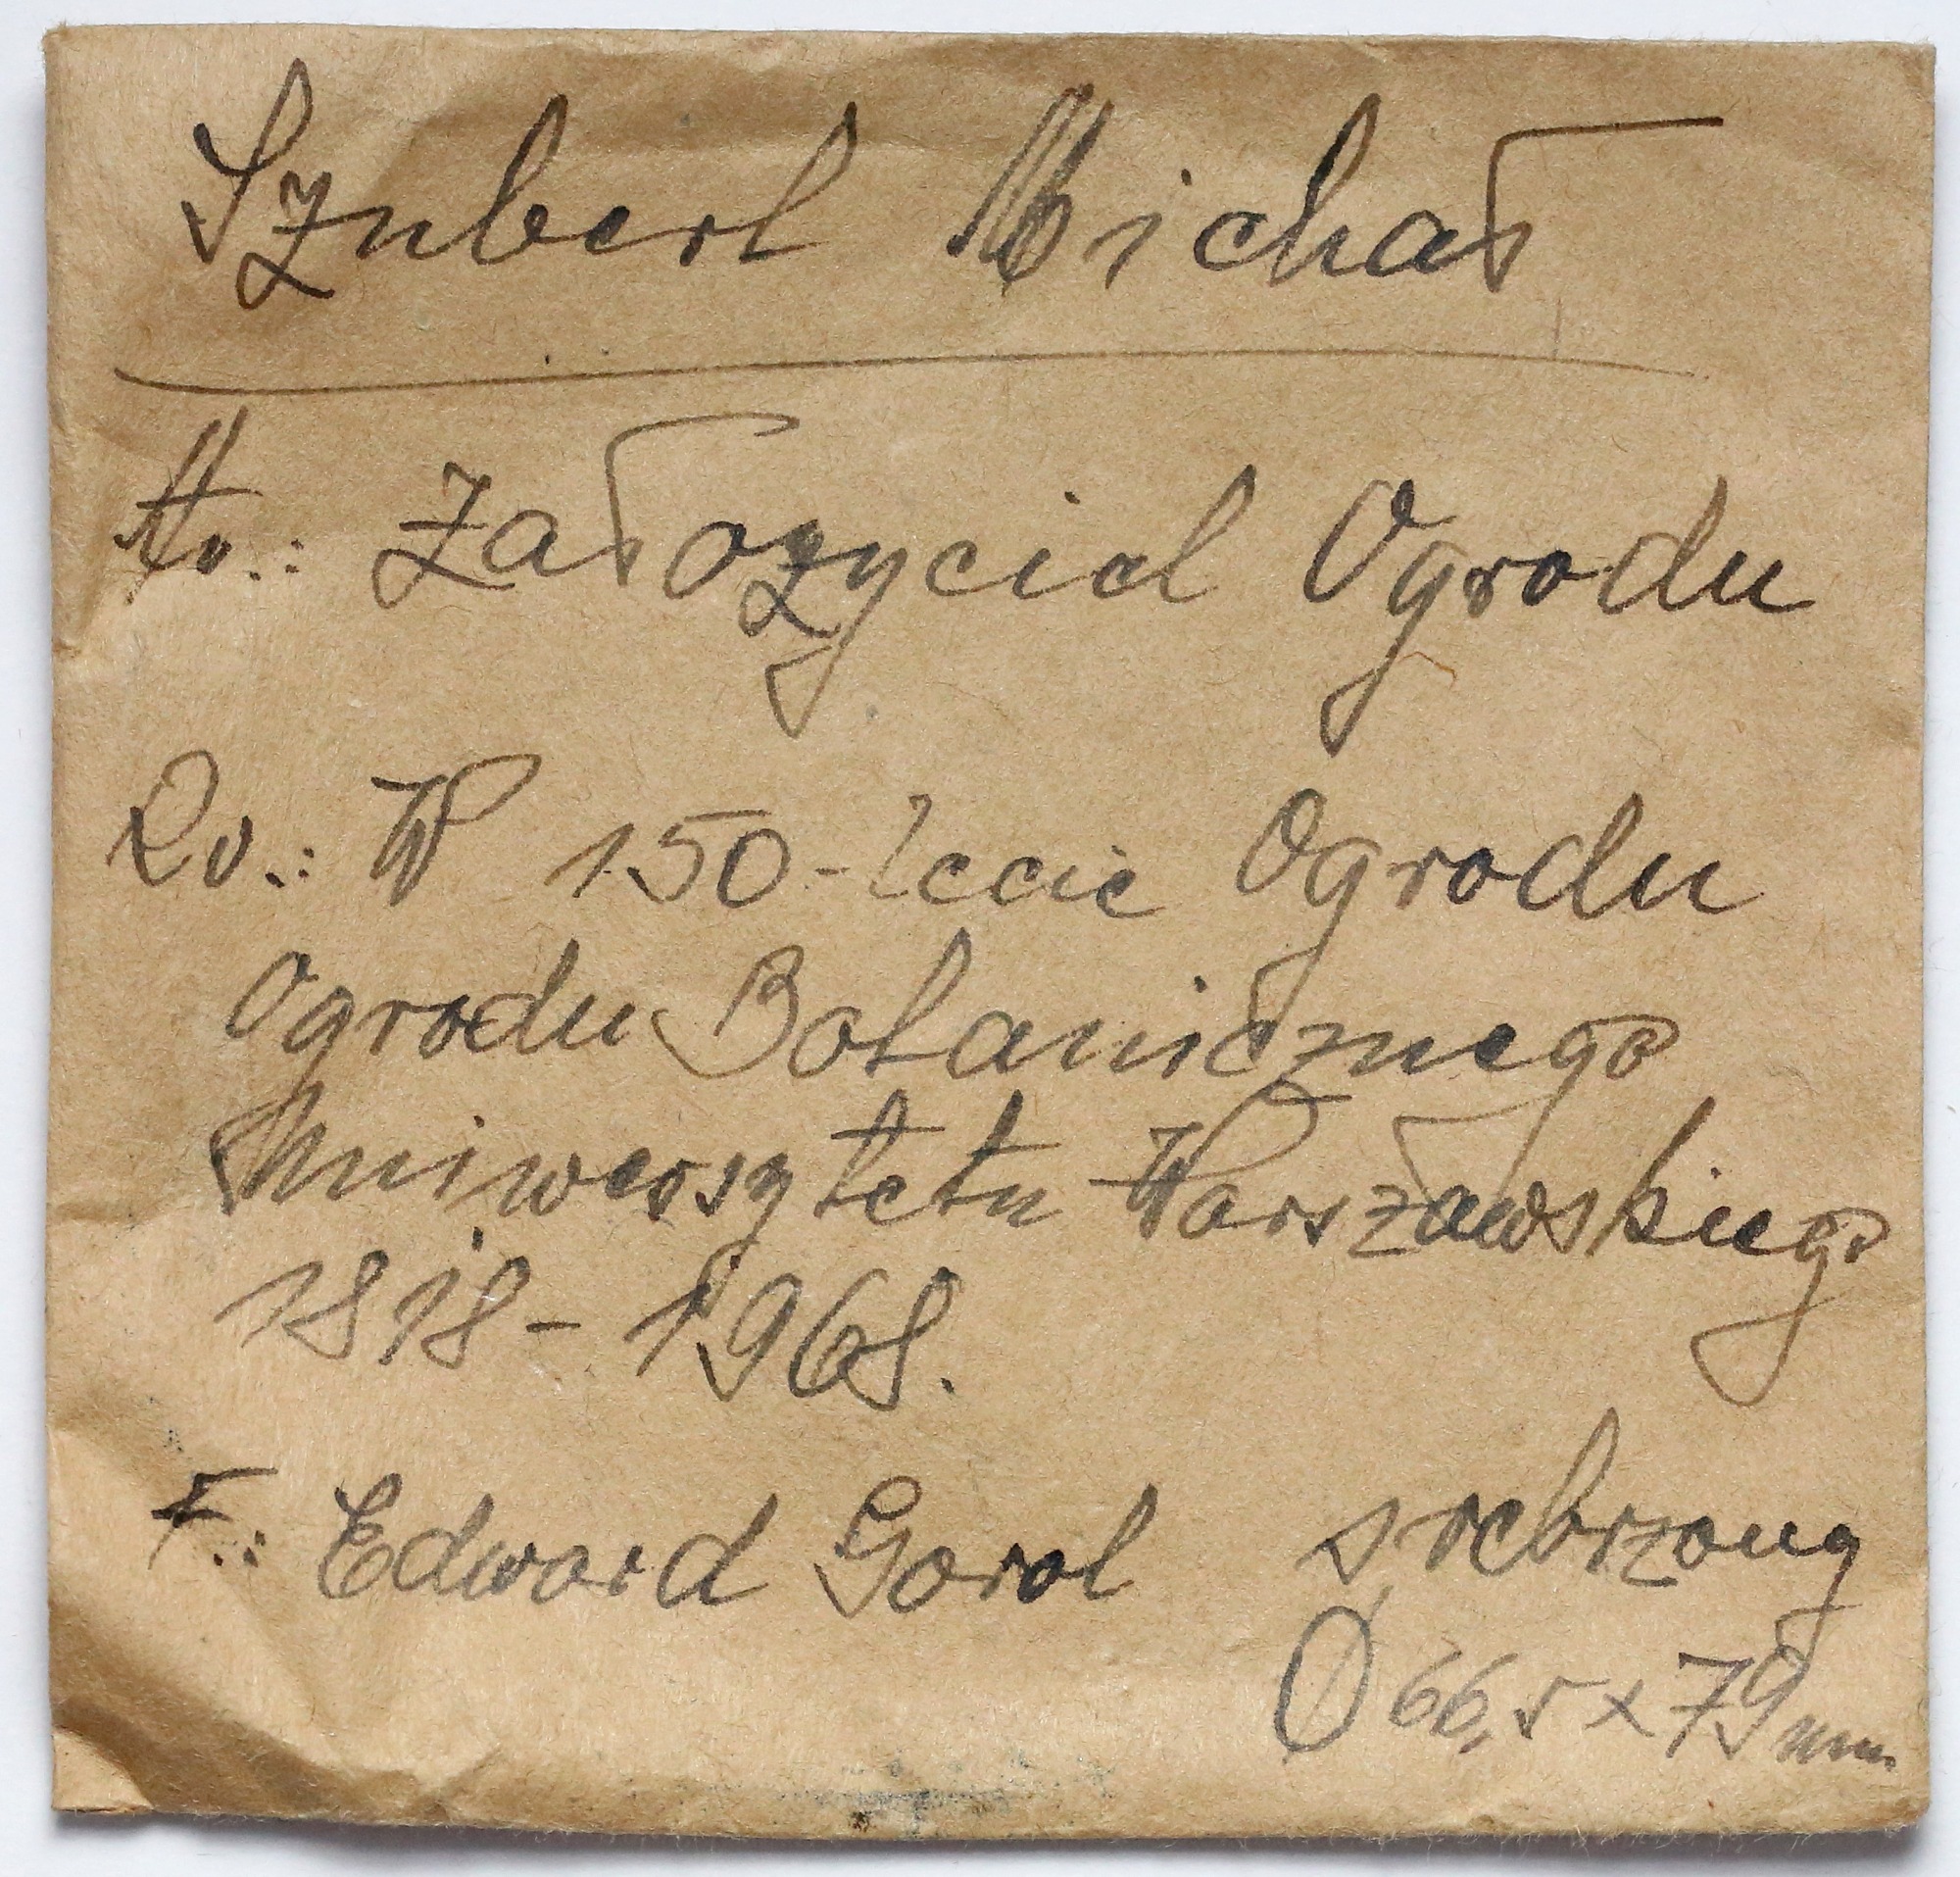 Szubert Michał
Av.: Założyciel Ogrodu
Rv.: W 150-lecie Ogrodu
Ogrodu Botanicznego
Uniwersytetu Warszawskiego
1818 - 1968.
F.: Edward Gorol srebrzony
Ø 66,5 x 79 mm.